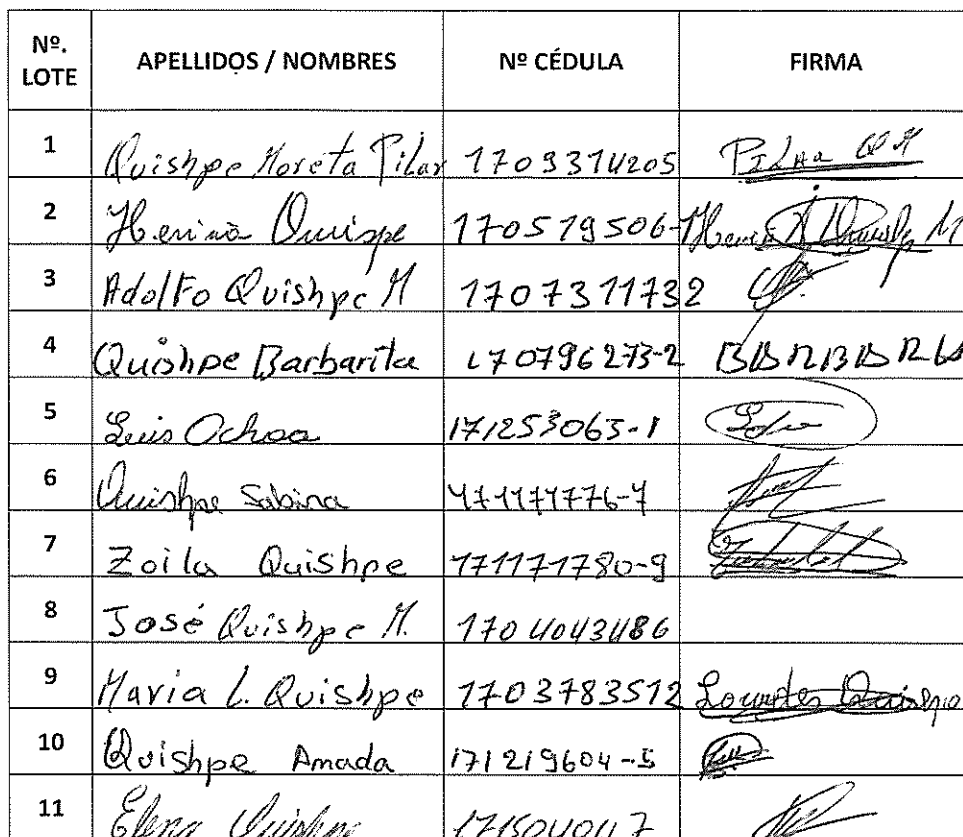 Nº. LOTE APELLIDOS / NOMBRES Nº CÉDULA FIRMA
1 Quishpe Moreta Pilar 1709314205
2 Quispe 170519506-
3 Adolfo Quishpe M 1707311732
4 Quishpe Barbarita 170796273-2
5 Luis Ochoa 171253063-1
6 Quishpe Sabina 171171776-7
7 Zoila Quishpe 171171780-9
8 José Quishpe M. 1704043486
9 Maria L. Quishpe 1703783512 Lourdes Quishpe
10 Quishpe Amada 171219604-5
11 Elena Quishpe